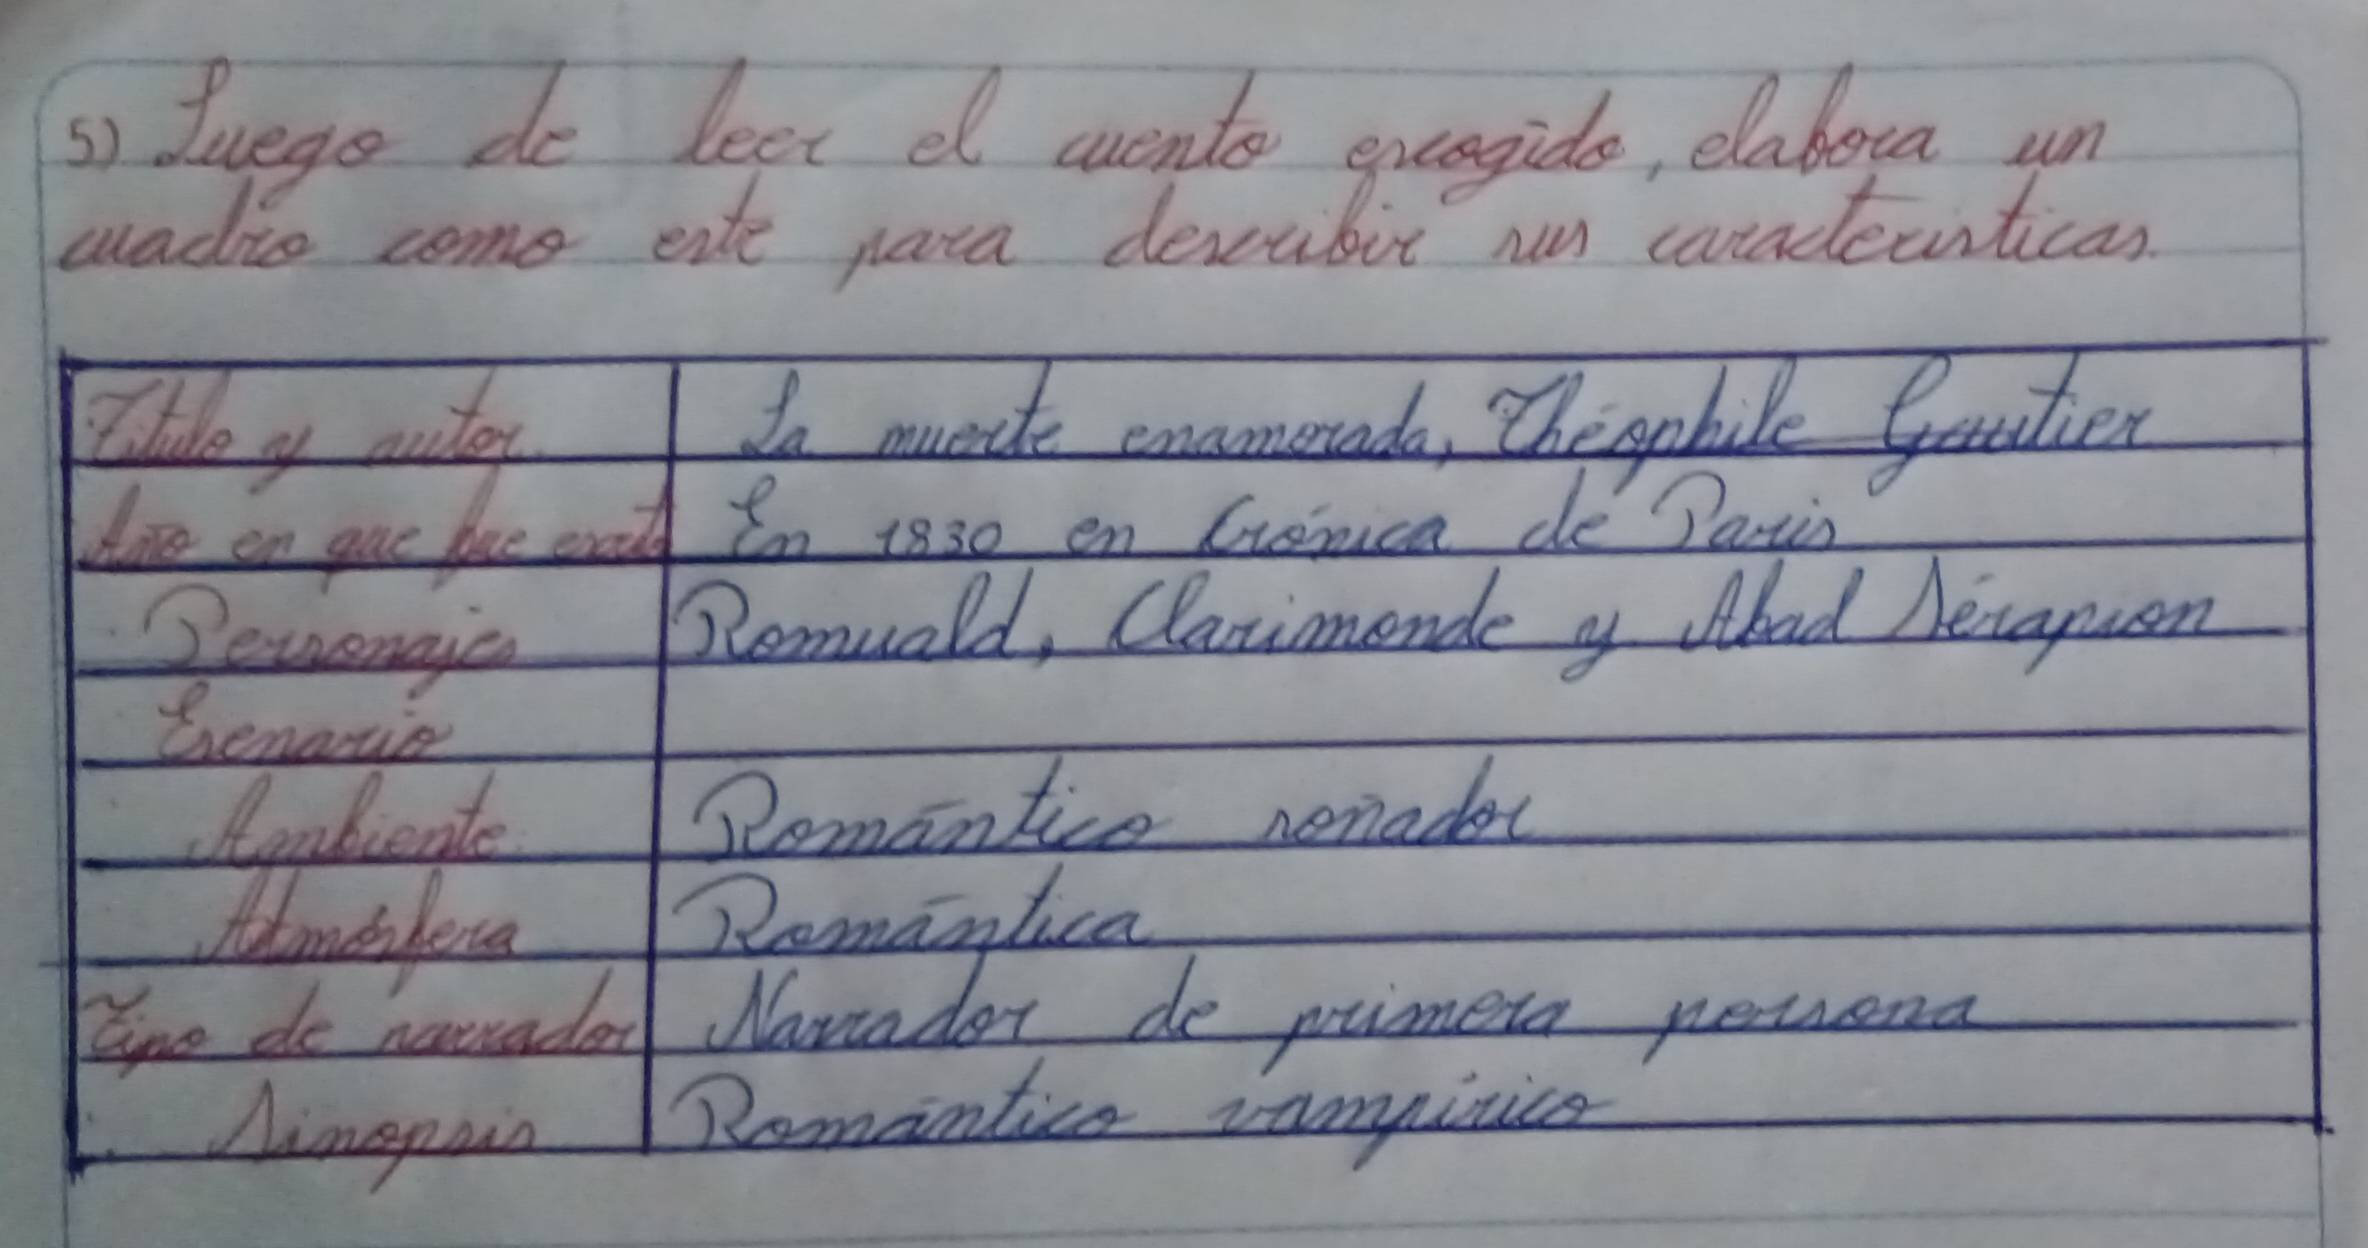 5) Luego de leer el cuento escogido, elabora un
cuadro como este para describir sus características.
Título y autor La muerte enamorada, Théophile Gautier
Año en que fue escrito En 1830 en Crónica de Paris
Personajes Romuald, Clarimonde y Abad Sérapion
Escenario
Ambiente Romántico soñador
Atmósfera Romántica
Tipo de narrador Narrador de primera persona
Sinopsis Romántico vampírico